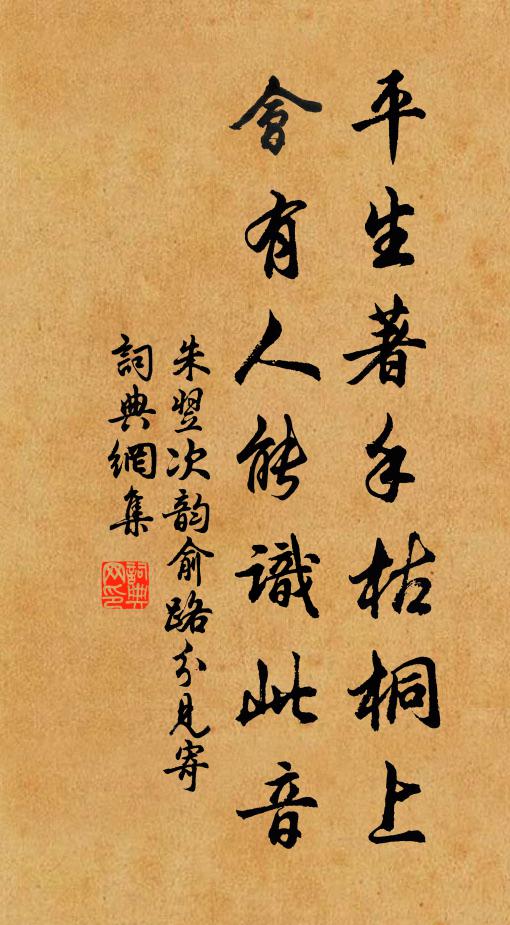 平生著手枯桐上
會有人能識此音
朱翌次韵俞路分見寄
詞典網集
詞典網印